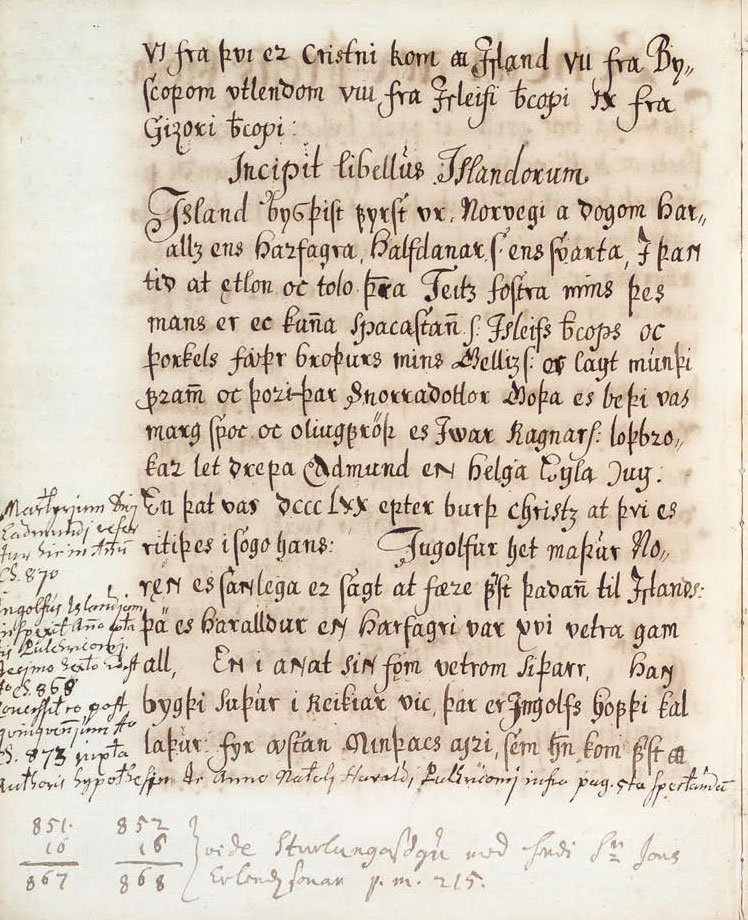 VI fra þvi er Cristni kom a Jsland VII fra By„
scopom vtlendom VIII fra Jsleifi bcopi IX fra
Gizori bcopi:
Incipit libellus Islandorum.
Island bygþist fyrst vr Norvegi a dogom Har„
allz ens harfagra, halfdanar s. ens svarta, J þan
tiþ at ętlon oc tolo þra Teitz fostra mins þes
mans er ec kuña spacastañ s: Jsleifs bcops oc
þorkels faþr broþurs mins Gellizs: es lagt munþi
fram oc þoriþar Snorradottor Goþa es beþi vas
marg spoc oc oliugfröþ es Jwar Ragnars: loþbro„
kar let drepa Eadmund en helga Engla
En þat vas dccc Lxx epter burþ christz at þvi es
ritiþes i sogo hans: Jngolfur het maþur No„
ren es sanlega er sagt at fære fyst þadañ til Jslands:
þa es haralldur en harfagri var xvi vetra gam
all, En i anat sin fom vetrom siþarr, han
bygþi suþur i Reikiar vic, þar er Jngolfs hofþi kal
laþur fyr austan Minþacs ayri, sem hn kom fyst a
Martyrium
Eadmundj refer
tur hic in Annum
Ch. 870
Ingolfus Islandiam
Anno
Pulchricomj
decimo sexto
Ch. 868
post
quinquennium
Ch. 873 juxta
Authoris hypothesin de Anno Natali Haraldi Pulchricomj infra pag. 5ta spectandum
851. 852
16 16
867 868
vide Sturlungasögu med hendi Sr Jons
Erlendzsonar p. m. 215.